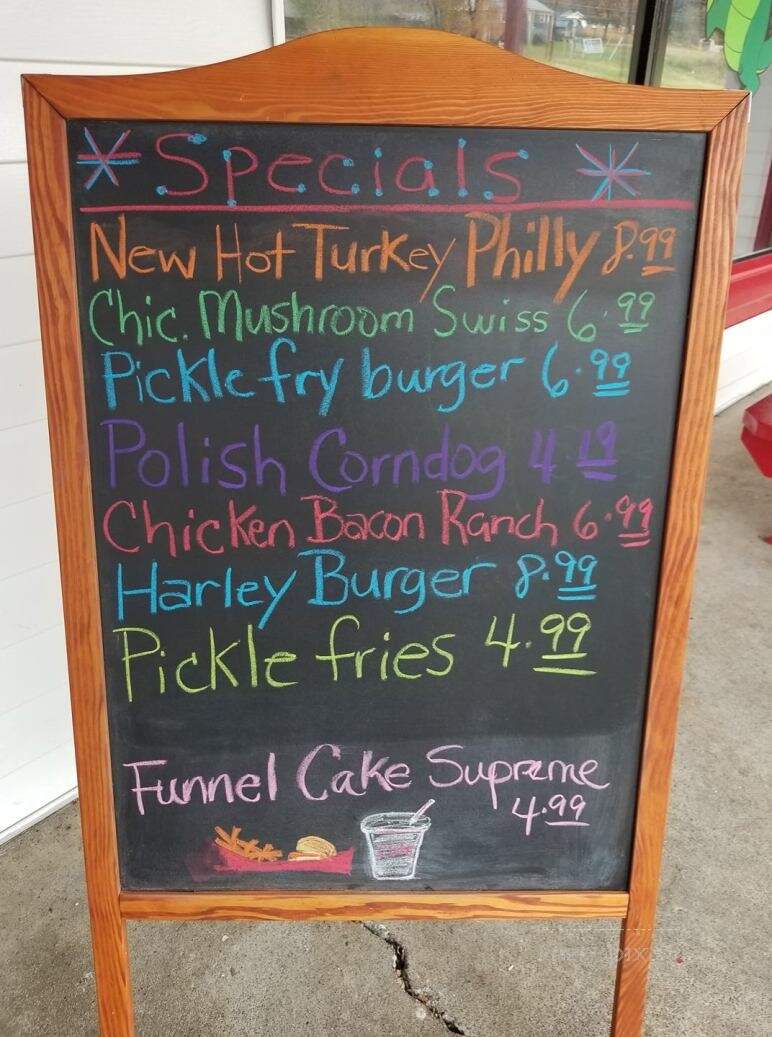 * Specials *
New Hot Turkey Philly 8.99
Chic. Mushroom Swiss 6.99
Pickle fry burger 6.99
Polish Corndog 4.19
Chicken Bacon Ranch 6.99
Harley Burger 8.99
Pickle fries 4.99
Funnel Cake Supreme
4.99